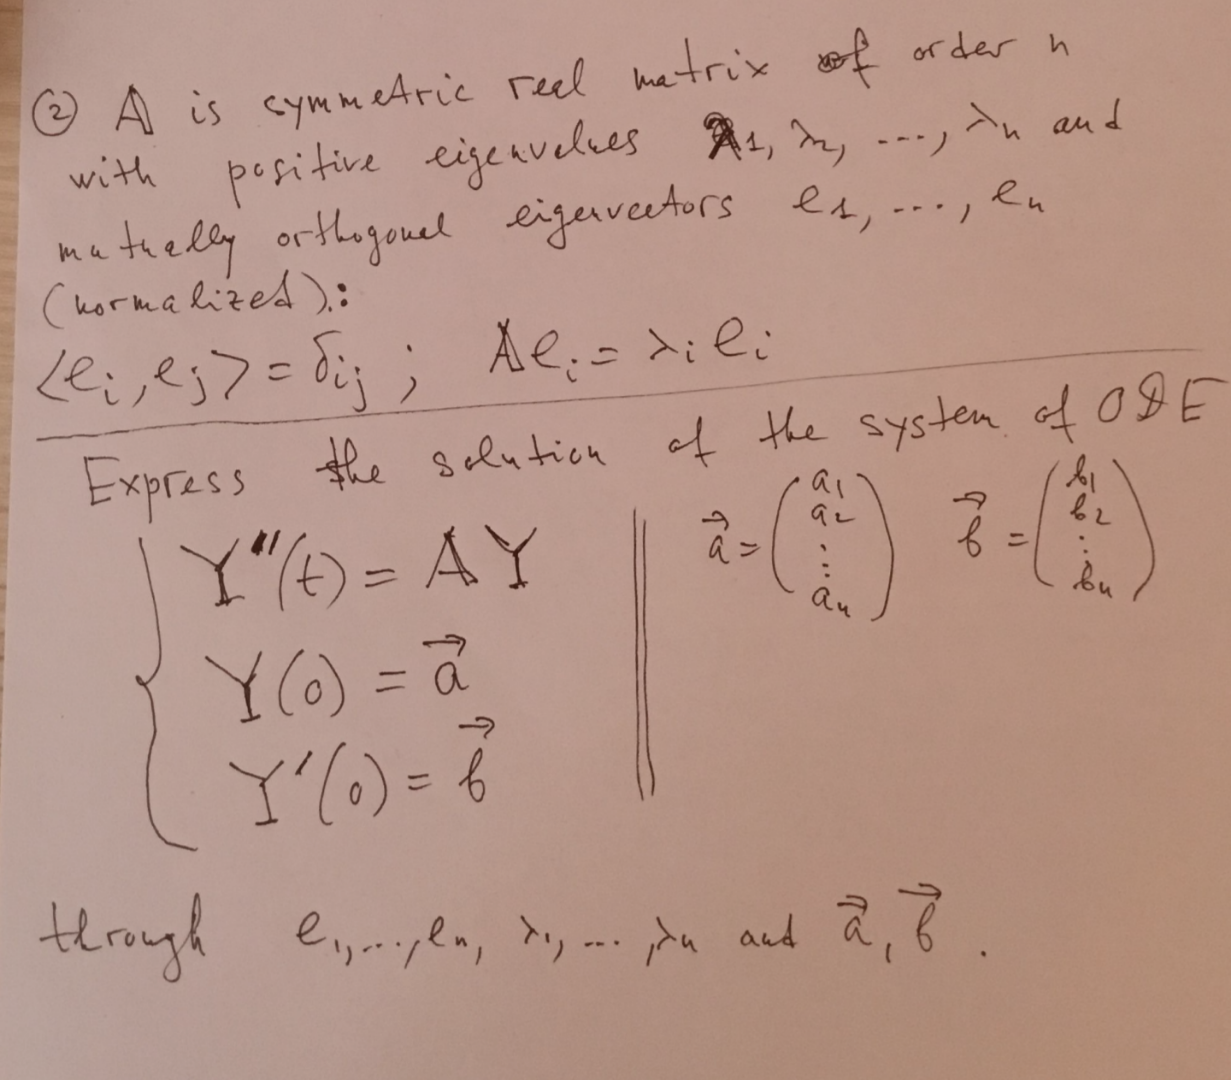 ② A is symmetric real matrix of order n
with positive eigenvalues λ1, λ2, ..., λn and
mutually orthogonal eigenvectors e1, ..., en
(normalized).:
<ei, ej> = δij ; Aei = λi ei
Express the solution of the system of ODE
Y''(t) = AY
Y(0) = a⃗
Y'(0) = b⃗
a⃗ = (a1 a2 ⋮ an) b⃗ = (b1 b2 ⋮ bn)
through e1, ..., en, λ1, ..., λn and a⃗, b⃗ .